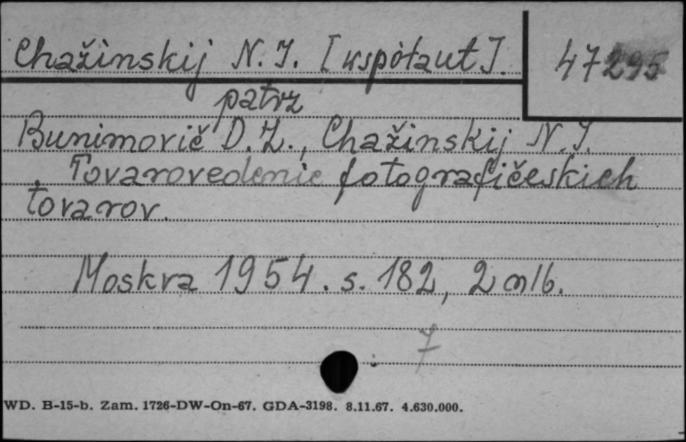 Chažinskij N. I. [współaut]. 47295
patrz
Bunimovič D. Z., Chažinskij N. I.
Tovarovedenie fotografičeskich
tovarov.
Moskva 1954. s. 182, 2 nlb.
7
WD. B-15-b. Zam. 1726-DW-On-67. GDA-3198. 8.11.67. 4.630.000.